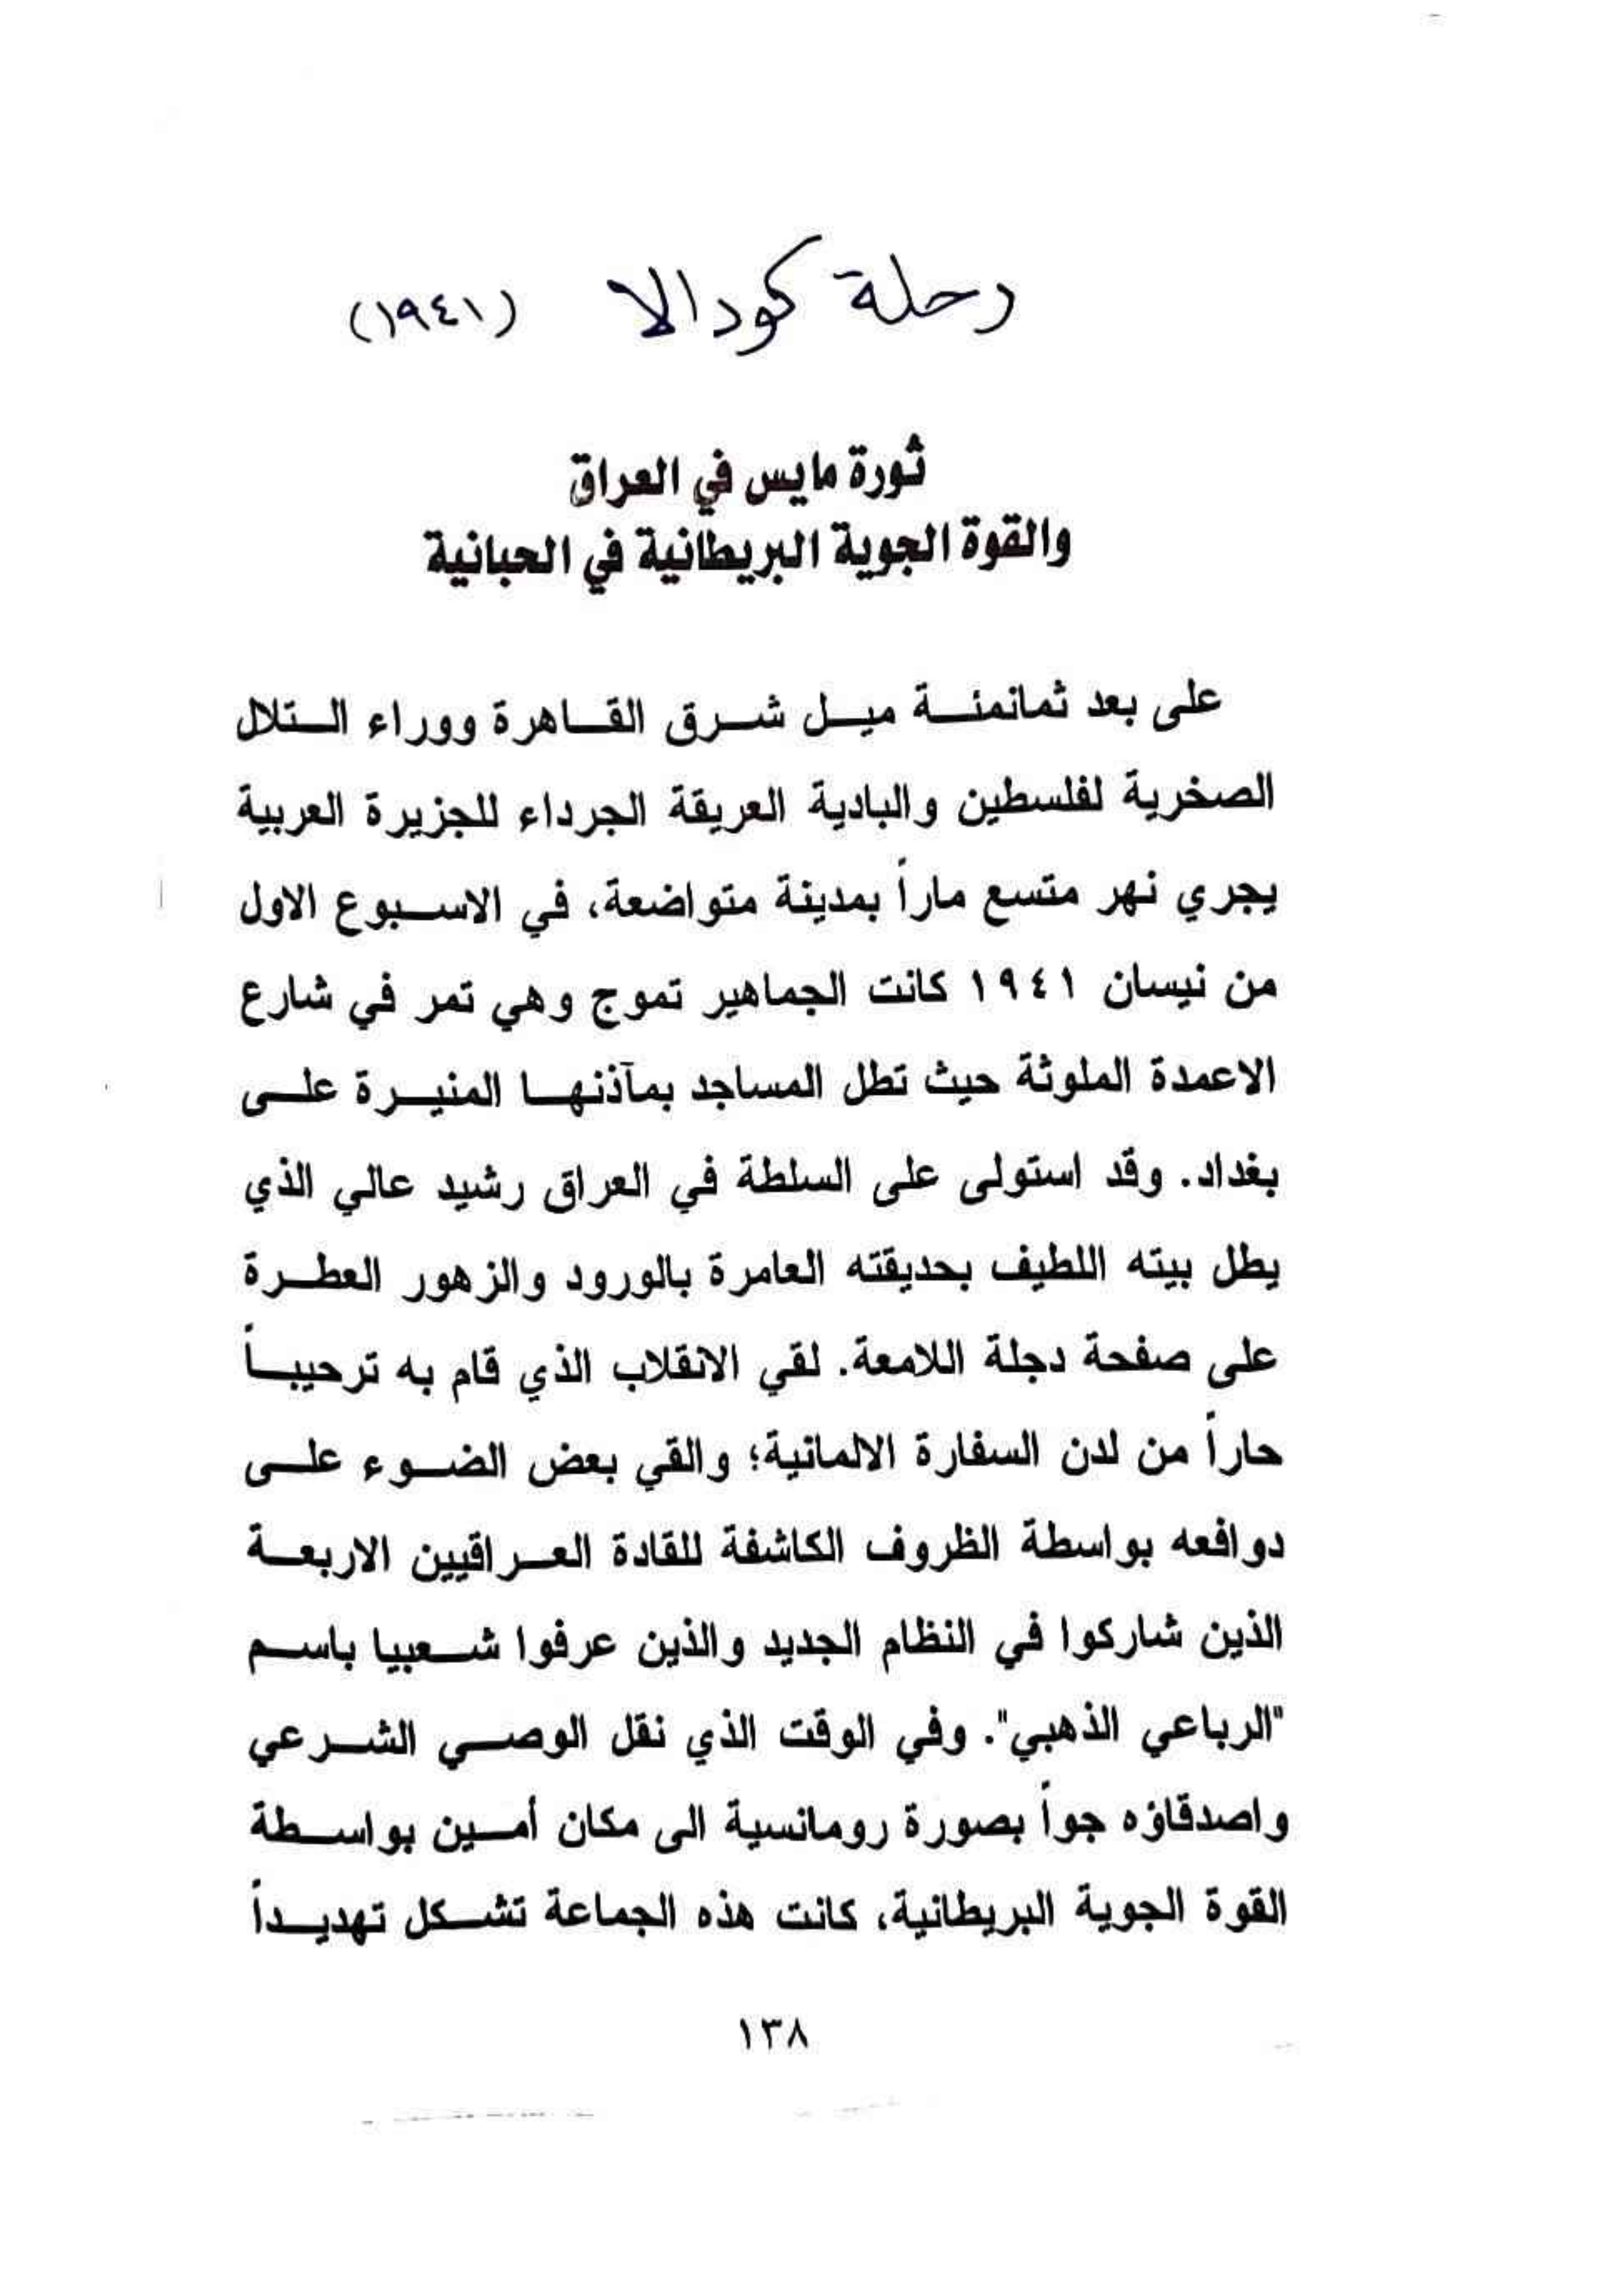 رحلة كودالا (١٩٤١)
ثورة مايس في العراق
والقوة الجوية البريطانية في الحبانية
على بعد ثمانمئة ميل شرق القاهرة ووراء التلال
الصخرية لفلسطين والبادية العريقة الجرداء للجزيرة العربية
يجري نهر متسع ماراً بمدينة متواضعة، في الاسبوع الاول
من نيسان ١٩٤١ كانت الجماهير تموج وهي تمر في شارع
الاعمدة الملوثة حيث تطل المساجد بمآذنها المنيرة على
بغداد. وقد استولى على السلطة في العراق رشيد عالي الذي
يطل بيته اللطيف بحديقته العامرة بالورود والزهور العطرة
على صفحة دجلة اللامعة. لقي الانقلاب الذي قام به ترحيباً
حاراً من لدن السفارة الالمانية؛ والقي بعض الضوء على
دوافعه بواسطة الظروف الكاشفة للقادة العراقيين الاربعة
الذين شاركوا في النظام الجديد والذين عرفوا شعبيا باسم
"الرباعي الذهبي". وفي الوقت الذي نقل الوصي الشرعي
واصدقاؤه جواً بصورة رومانسية الى مكان أمين بواسطة
القوة الجوية البريطانية، كانت هذه الجماعة تشكل تهديداً
١٣٨